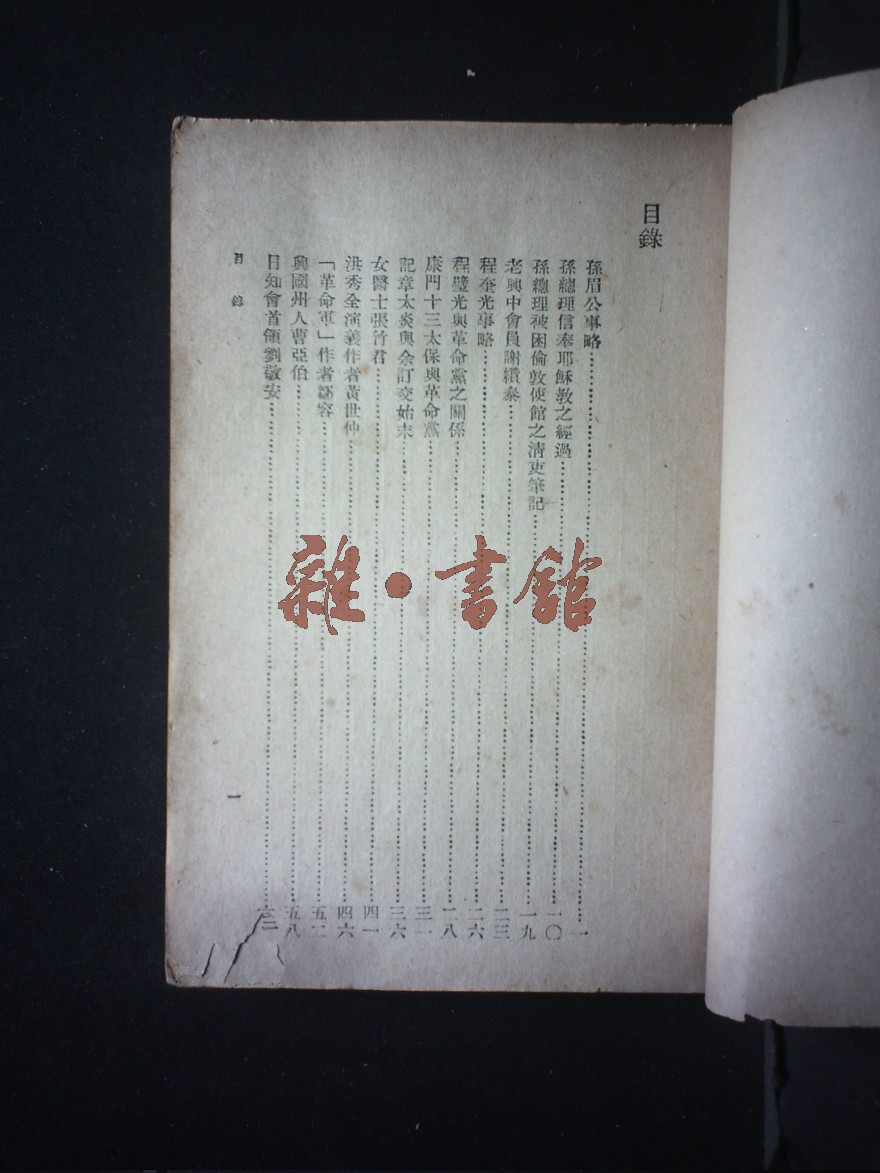 目錄
孫眉公事略……一
孫總理信奉耶穌教之經過……一〇
孫總理被困倫敦使館之清吏筆記……一九
老興中會員謝纘泰……二三
程奎光事略……二六
程璧光與革命黨之關係……二八
康門十三太保與革命黨……三一
記章太炎與余訂交始末……三六
女醫士張竹君……四一
洪秀全演義作者黃世仲……四六
「革命軍」作者鄒容……五二
興國州人曹亞伯……五八
日知會首領劉敬安……六二
目錄
一
雜·書館